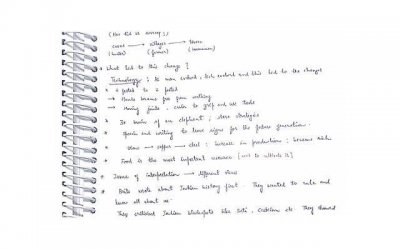 (How did it survey?)
caves → villages → towns
(hunter) (farmer) (businessmen)
* What led to this change?
Technology: So man evolved, tech evolved and this led to the changes
* 4 footed to 2 footed
→ Hands became for from walking
→ Moving joints, easier to grip and use tools
* So brain of an elephant; were strategies
* Speech and writing to leave signs for the future generation.
* Stone → copper → steel: increase in production: became rich
* Food is the most important resource [and to allocate it]
* Issues of interpretation → different views
* Brits wrote about Indian history first. They wanted to rule and
know all about us
They criticised Indian like Sati, Casteism etc. They showed